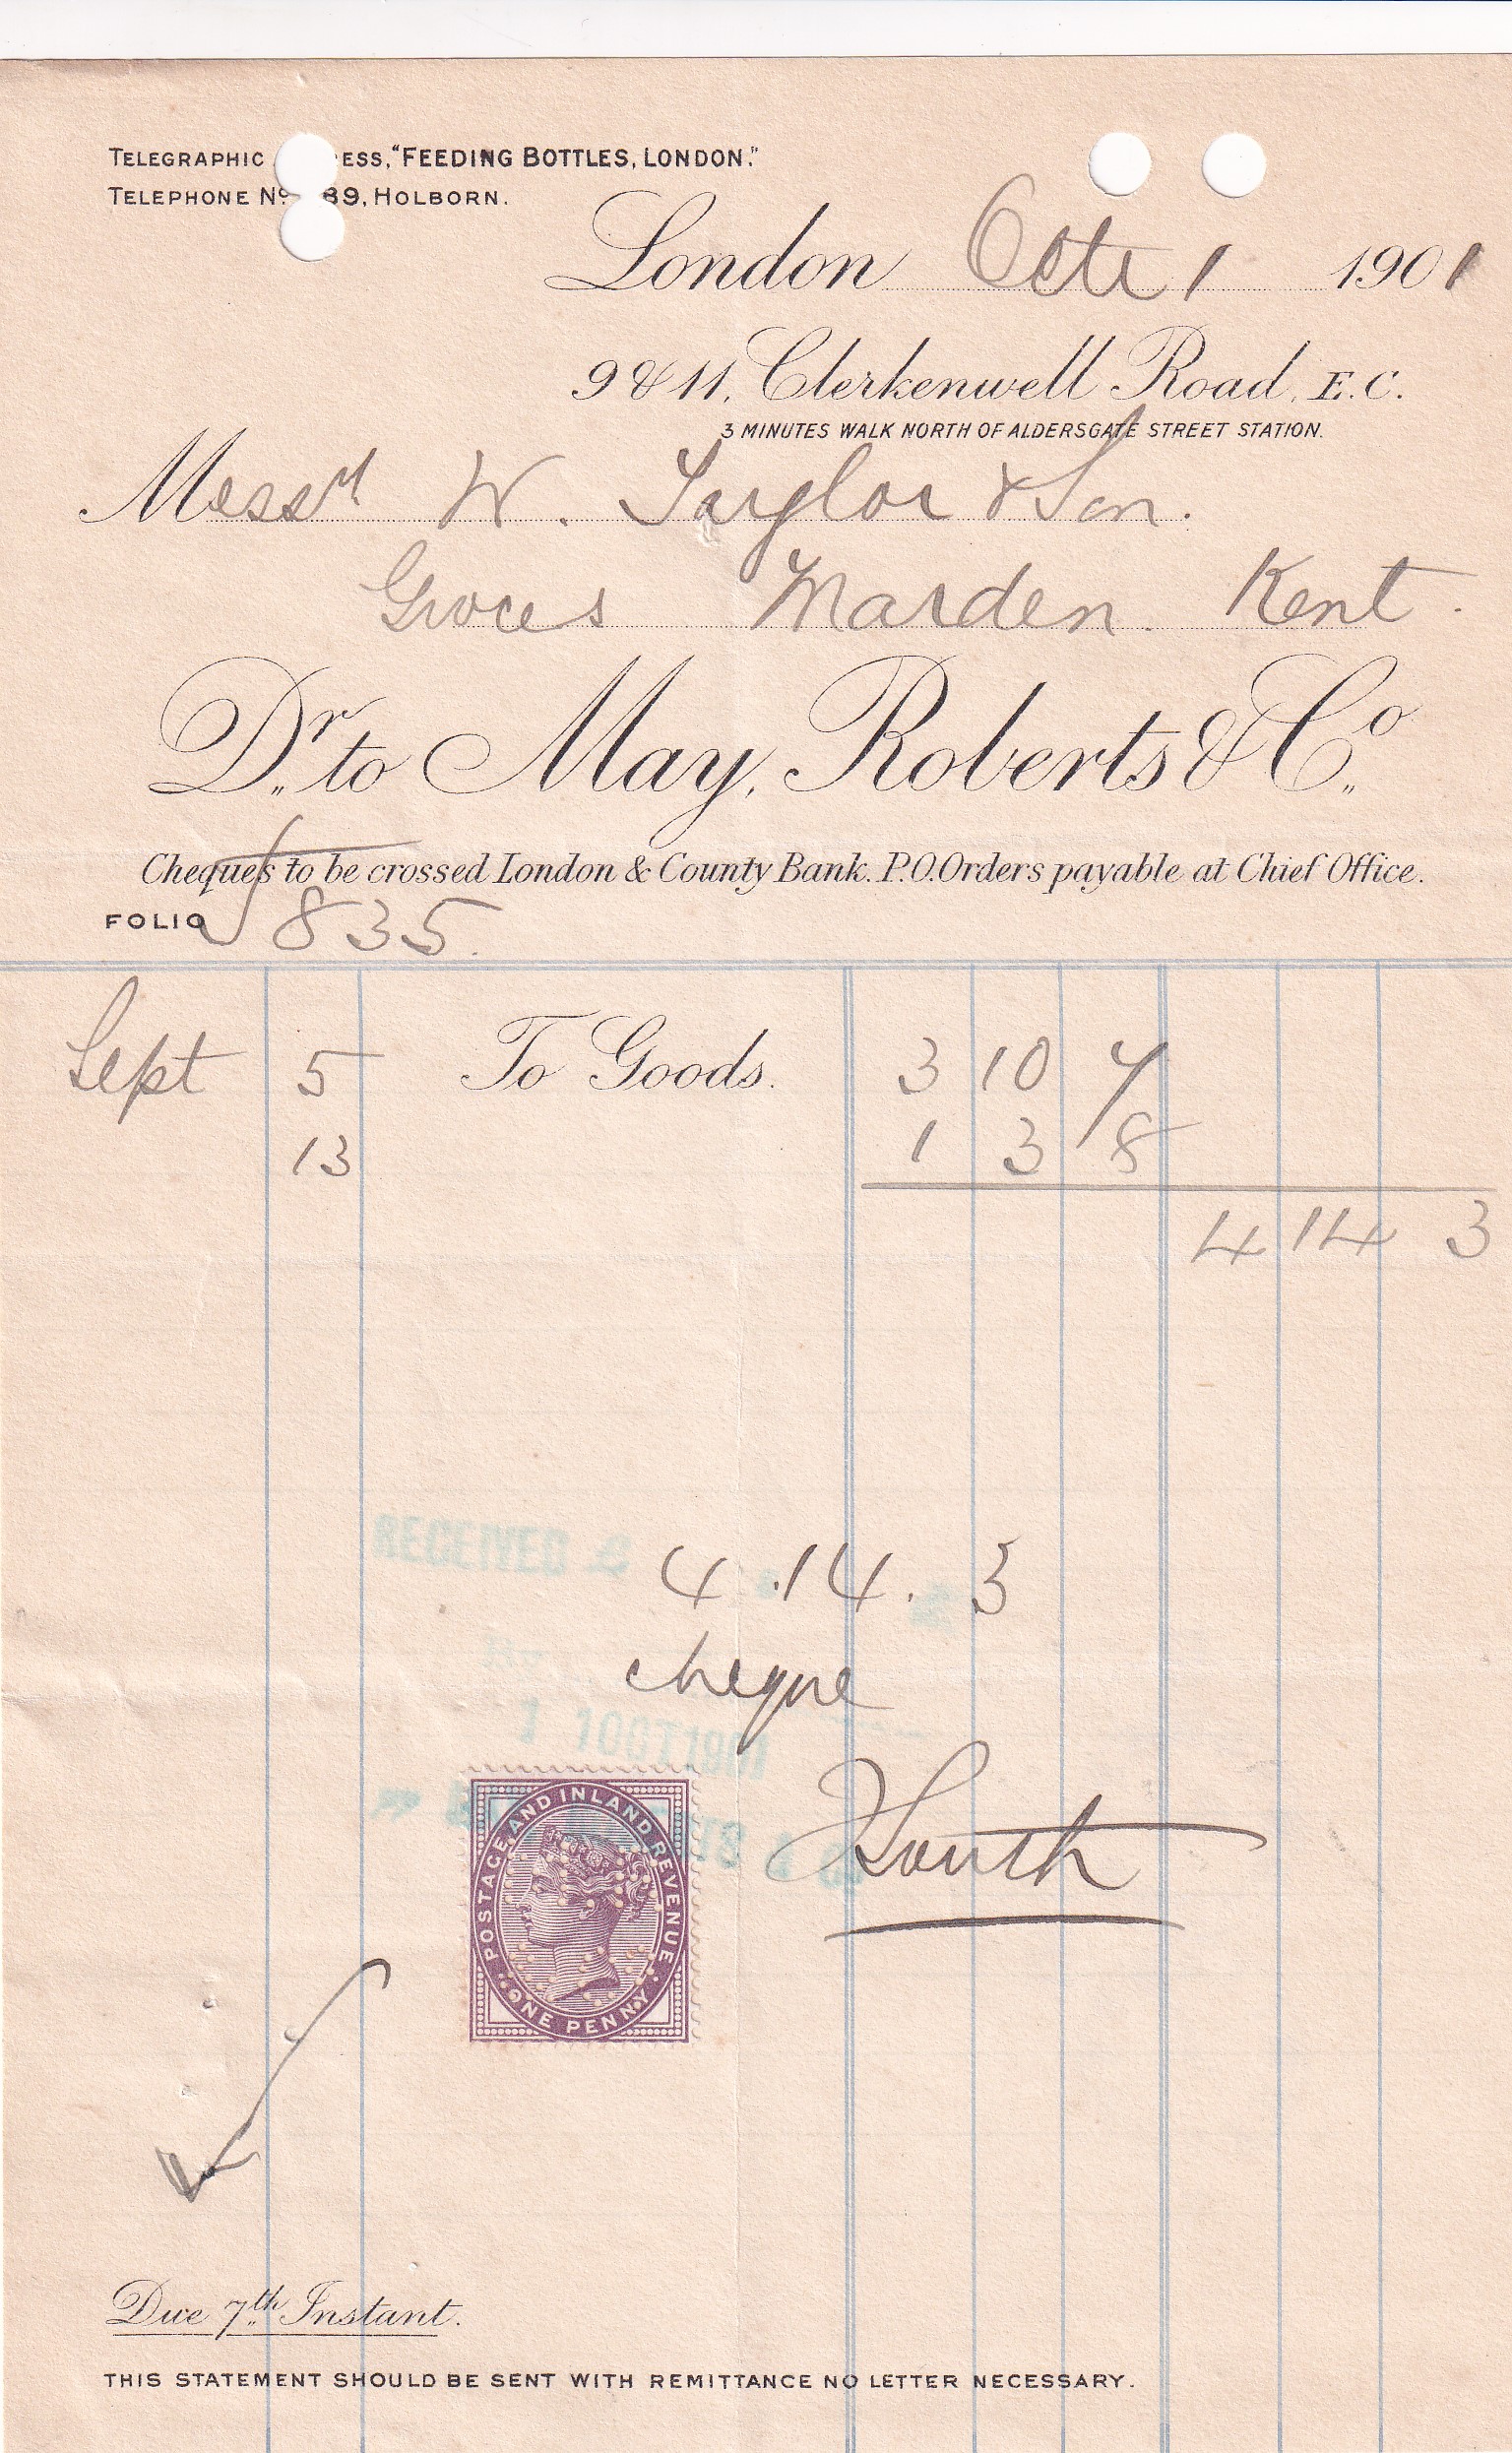 TELEGRAPHIC ESS, "FEEDING BOTTLES, LONDON."
TELEPHONE No 89, HOLBORN.
London Octr 1 1901
9 & 11, Clerkenwell Road, E.C.
3 MINUTES WALK NORTH OF ALDERSGATE STREET STATION.
Messrs W. Taylor & Son.
Grocers Marden. Kent.
Dr. to May, Roberts & Co.
Cheques to be crossed London & County Bank. P.O. Orders payable at Chief Office.
FOLIO 835.
Sept 5 To Goods. 3 10 7
13 1 3 8
4 14 3
RECEIVED
4.14.3
cheque
1 1 OCT 1901
South
POSTAGE AND INLAND REVENUE
ONE PENNY
Due 7th Instant.
THIS STATEMENT SHOULD BE SENT WITH REMITTANCE NO LETTER NECESSARY.